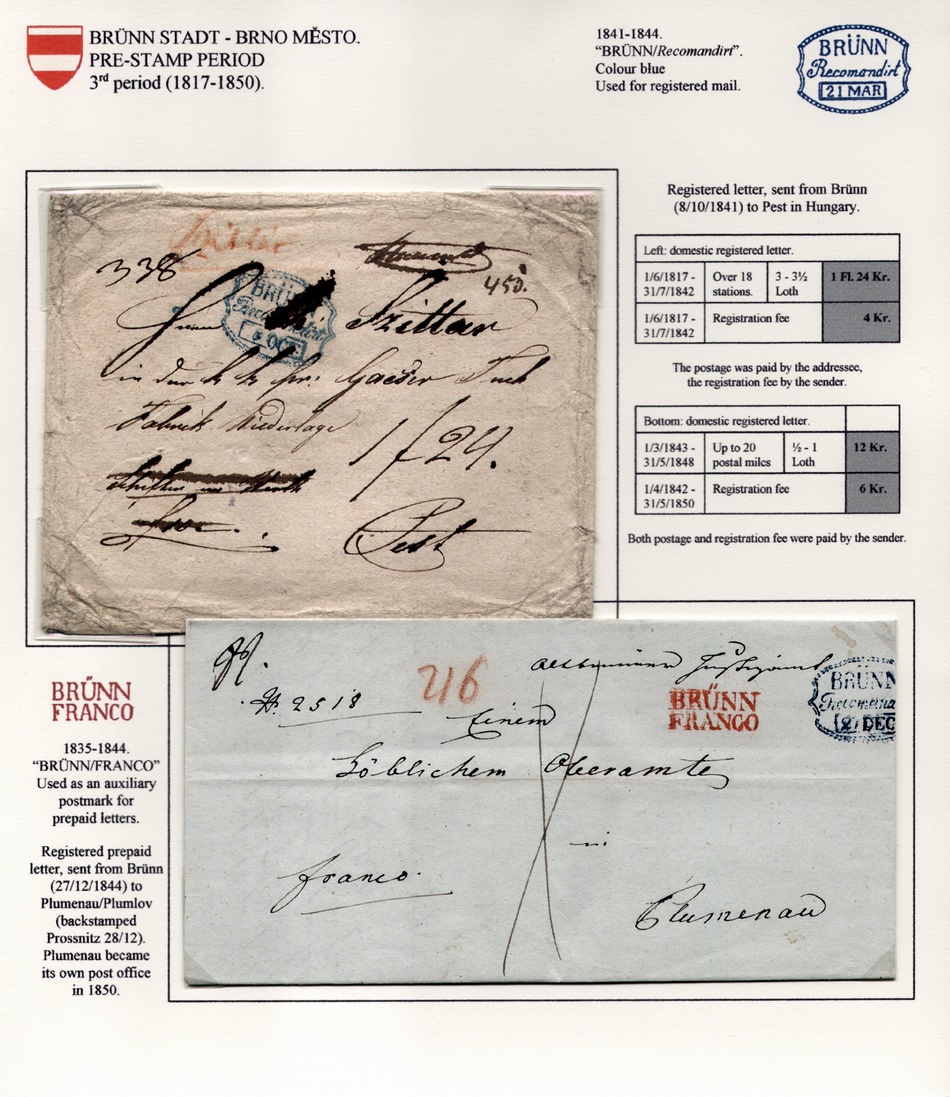 BRÜNN STADT - BRNO MĚSTO.
PRE-STAMP PERIOD
3rd period (1817-1850).
1841-1844.
“BRÜNN/Recomandirt”.
Colour blue
Used for registered mail.
BRÜNN
Recomandirt
21 MAR
Registered letter, sent from Brünn
(8/10/1841) to Pest in Hungary.
Left: domestic registered letter.
1/6/1817 - 31/7/1842 Over 18 stations. 3 - 3½ Loth 1 Fl. 24 Kr.
1/6/1817 - 31/7/1842 Registration fee 4 Kr.
The postage was paid by the addressee,
the registration fee by the sender.
Bottom: domestic registered letter.
1/3/1843 - 31/5/1848 Up to 20 postal miles ½ - 1 Loth 12 Kr.
1/4/1842 - 31/5/1850 Registration fee 6 Kr.
Both postage and registration fee were paid by the sender.
338
450.
BRÜNN
Recomandirt
OCT
Szittar
in der k k pri:
Fabrick Niederlage
1/24.
Pest
BRÜNN
FRANCO
1835-1844.
“BRÜNN/FRANCO”
Used as an auxiliary
postmark for
prepaid letters.
Registered prepaid
letter, sent from Brünn
(27/12/1844) to
Plumenau/Plumlov
(backstamped
Prossnitz 28/12).
Plumenau became
its own post office
in 1850.
216
2518
BRÜNN
FRANCO
BRÜNN
Recomandi
DEC
Einem
Löblichem Oberamte
in
franco.
Plumenau